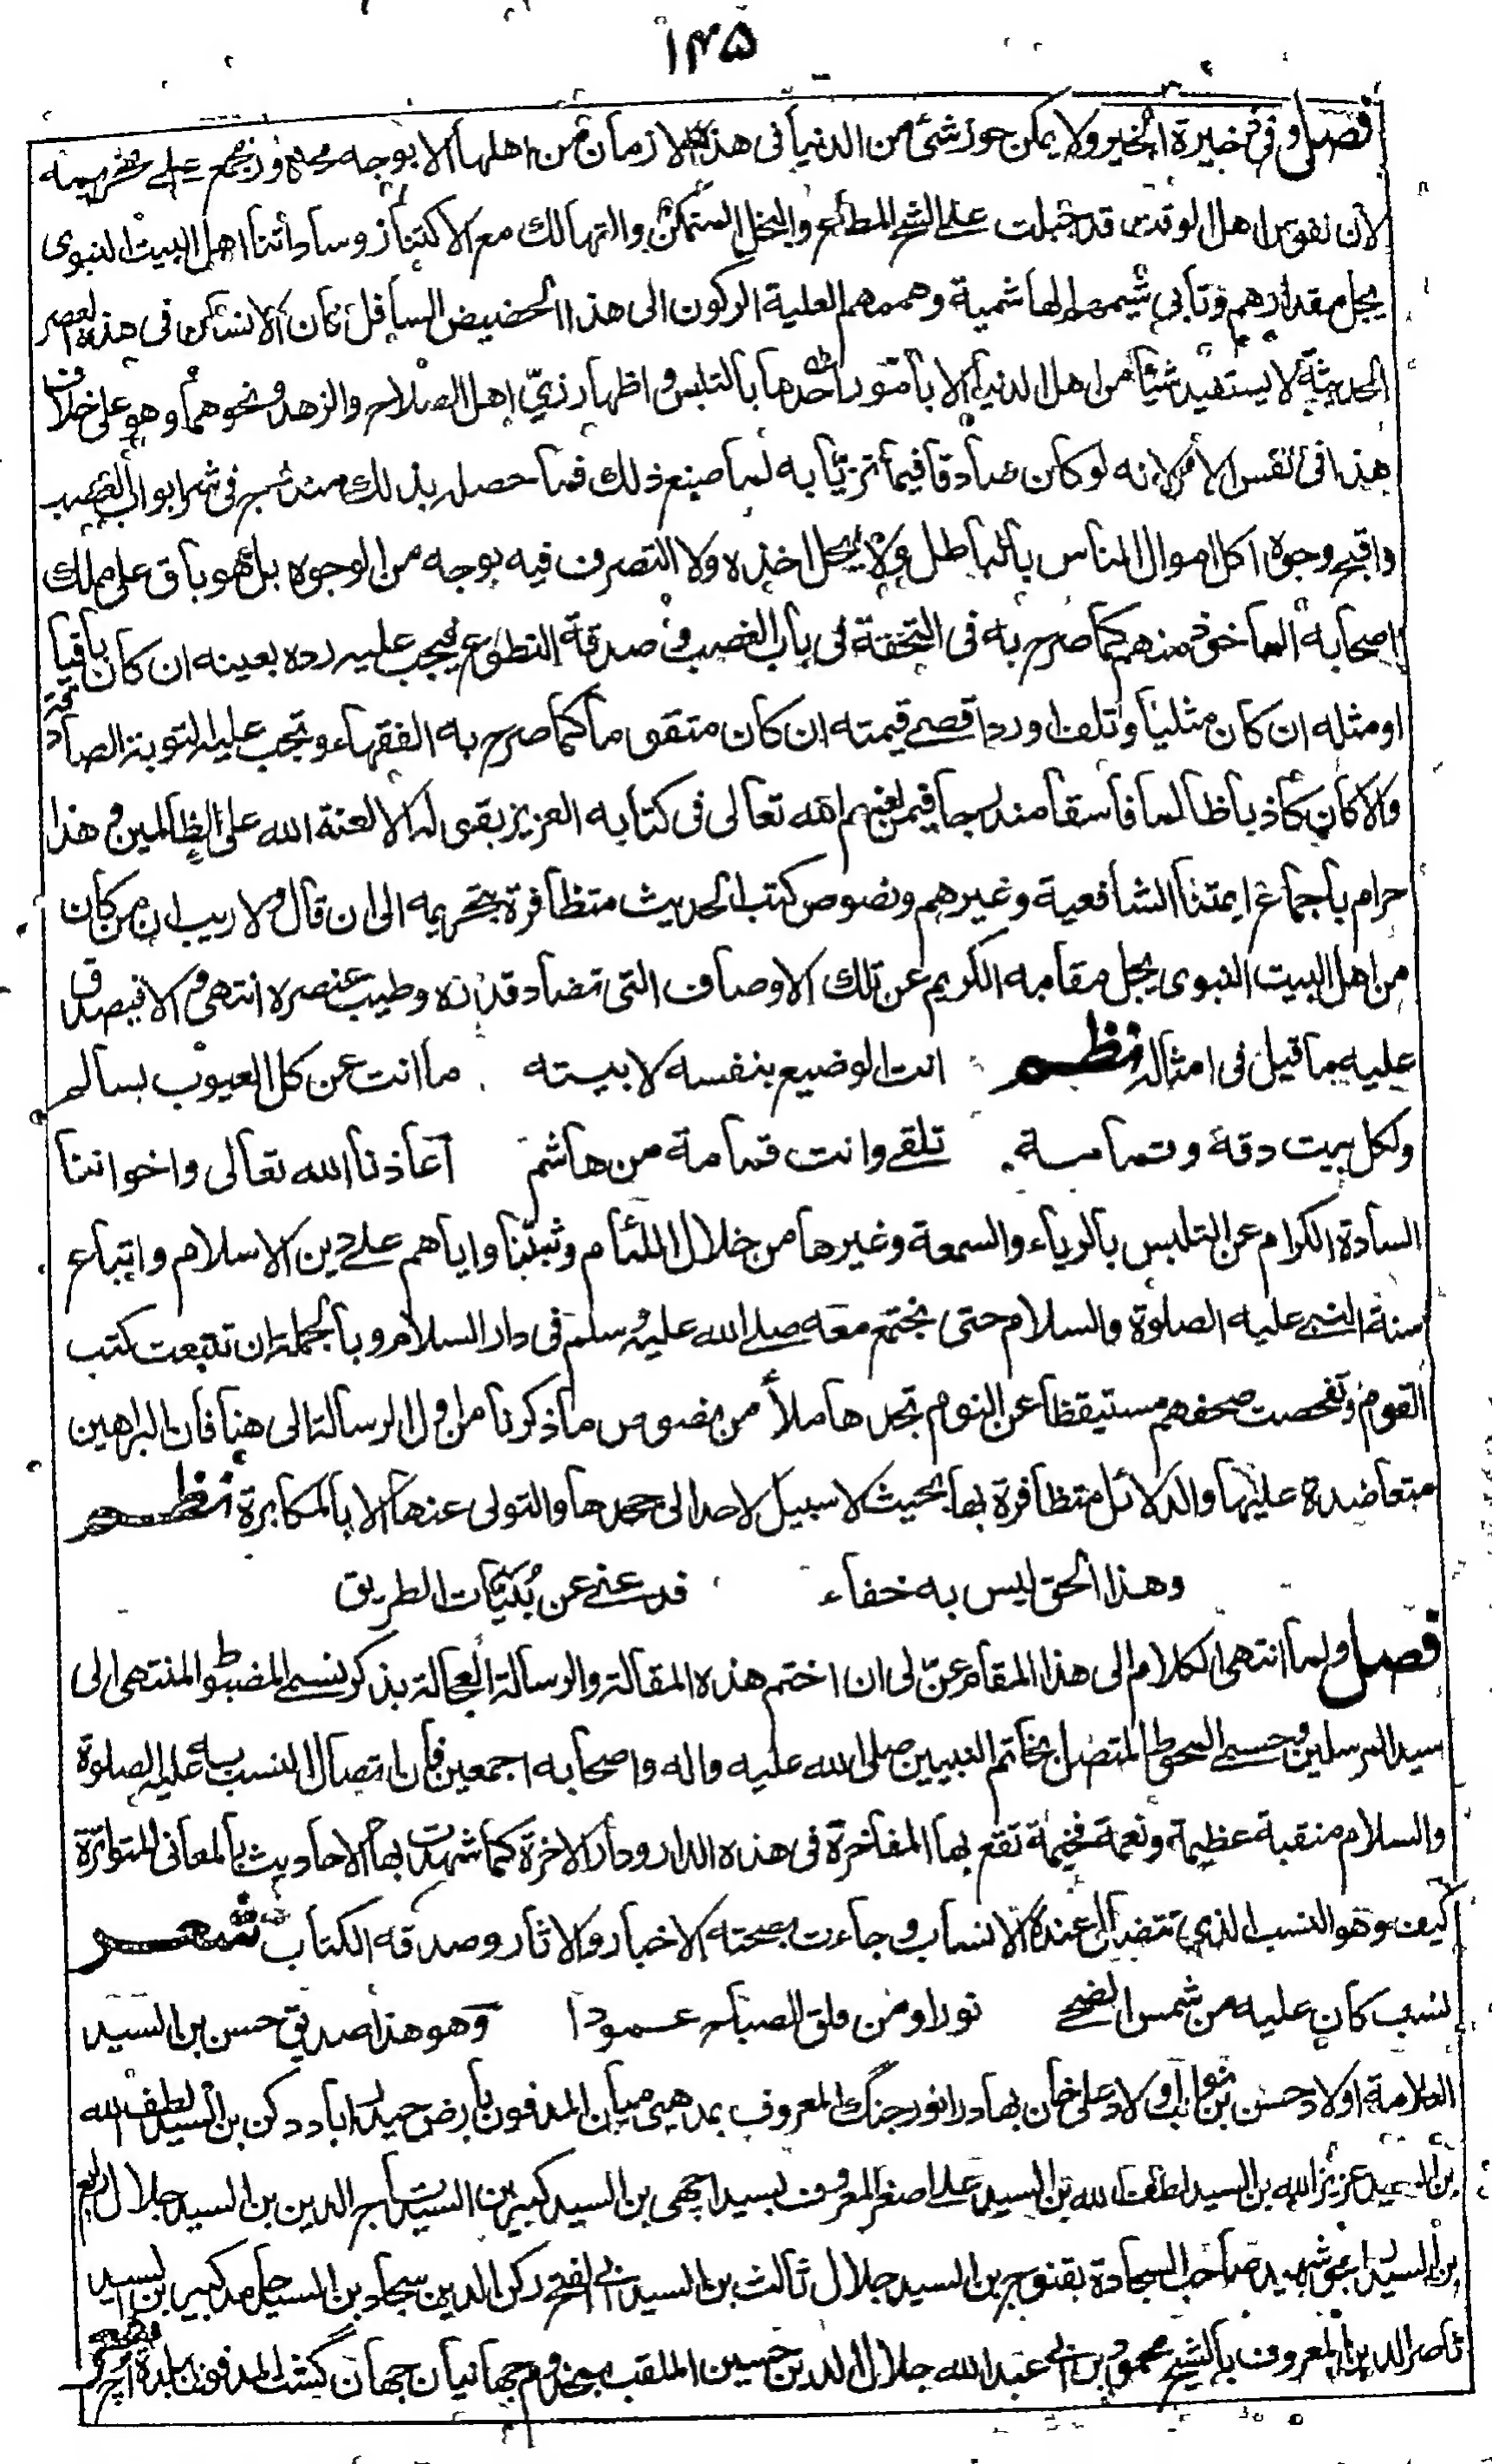 ١٤٥
فصل وفى ذخيرة الخير ولا يمكن حوز شئ من الدنيا فى هذه الازمان من اهلها الا بوجه مجمع على تحريمه
لان نفوس اهل الوقت قد جبلت على الشح المطاع والبخل المتمكن والتهالك مع الاكتناز وساداتنا اهل البيت النبوى
يجل مقدارهم وتأبى شيمهم الهاشمية وهممهم العلية الركون الى هذا الحضيض السافل فان الانسان فى هذه العصر
الحديثة لا يستفيد شيئا من اهل الدنيا الا بامور احدها بالتلبس واظهار زىّ اهل الصلاح والزهد ونحوهما وهو على خلاف
هذا فى نفس الامر لانه لو كان صادقا فيما تزيّا به لما صنع ذلك فما حصل بذلك مندرج فى شر ابواب الغصب
واقبح وجوه اكل اموال الناس بالباطل ولا يحل اخذه ولا التصرف فيه بوجه من الوجوه بل هو باق على ملك
اصحابه المأخوذ منهم كما صرح به فى التحفة فى باب الغصب وفى صدقة التطوع فيجب عليه رده بعينه ان كان باقيا
او مثله ان كان مثليا وتلف او رد اقصى قيمته ان كان متقوما كما صرح به الفقهاء وتجب عليه التوبة الصادقة
والا كان كاذبا ظالما فاسقا مندرجا فيمن لعنهم الله تعالى فى كتابه العزيز بقوله الا لعنة الله على الظالمين وهذا
حرام باجماع ايمتنا الشافعية وغيرهم ونصوص كتب الحديث متظافرة بتحريمه الى ان قال ولا ريب ان من كان
من اهل البيت النبوى يجل مقامه الكريم عن تلك الاوصاف التى تضاد قدره وطيب عنصره انتهى والا فيصدق
عليه ما قيل فى امثاله نظم انت الوضيع بنفسه لا بيته ما انت عن كل العيوب بسالم
ولكل بيت دقة وقمامة تلقى وانت قمامة من هاشم اعاذنا الله تعالى واخواننا
السادة الكرام عن التلبس بالرياء والسمعة وغيرها من خلال اللئام وثبتنا واياهم على دين الاسلام واتباع
سنة النبى عليه الصلوة والسلام حتى نجتمع معه صلى الله عليه وسلم فى دار السلام وبالجملة ان تتبعت كتب
القوم وتفحصت صحفهم مستيقظا عن النوم تجدها ملأ من نصوص ما ذكرنا من اول الرسالة الى هنا فان البراهين
متعاضدة عليها والدلائل متظافرة بها بحيث لا سبيل لاحد الى جحدها والتولى عنها الا بالمكابرة نظم
وهذا الحق ليس به خفاء فدعنى عن بُنيّات الطريق
فصل ولما انتهى الكلام الى هذا المقام عنّ لى ان اختم هذه المقالة والرسالة العجالة بذكر نسبى المضبوط المنتهى الى
سيد المرسلين وحسبى المحوط المتصل بخاتم النبيين صلى الله عليه واله واصحابه اجمعين فان اتصال النسب به عليه الصلوة
والسلام منقبة عظيمة ونعمة فخيمة تقع بها المفاخرة فى هذه الدار ودار الاخرة كما شهدت بها الاحاديث بالمعانى المتواترة
كيف وهو النسب الذى تتضاءل عنده الانساب وجاءت بصحته الاخبار والاثار وصدقه الكتاب شعر
نسب كان عليه من شمس الضحى نورا ومن فلق الصباح عمودا وهو هذا صديق حسن بن السيد
العلامة اولاد حسن بن نواب اولاد على خان بهادر انور جنگ المعروف بمدهنى ميان المدفون بارض حيدراباد دكن بن السيد لطف الله
بن السيد عزيز الله بن السيد لطف الله بن السيد على اصغر المعروف بسيد اچهى بن السيد كبير بن السيد تاج الدين بن السيد جلال رابع
بن السيد راجو شهيد صاحب السجادة بقنوج بن السيد جلال ثالث بن السيد ابى الفتح ركن الدين سجاد بن السيد حامد كبير بن السيد
ناصر الدين المعروف بالشيخ محمود بن ابى عبد الله جلال الدين حسين الملقب بمخدوم جهانيان جهان گشت المدفون ببلدة اُچ